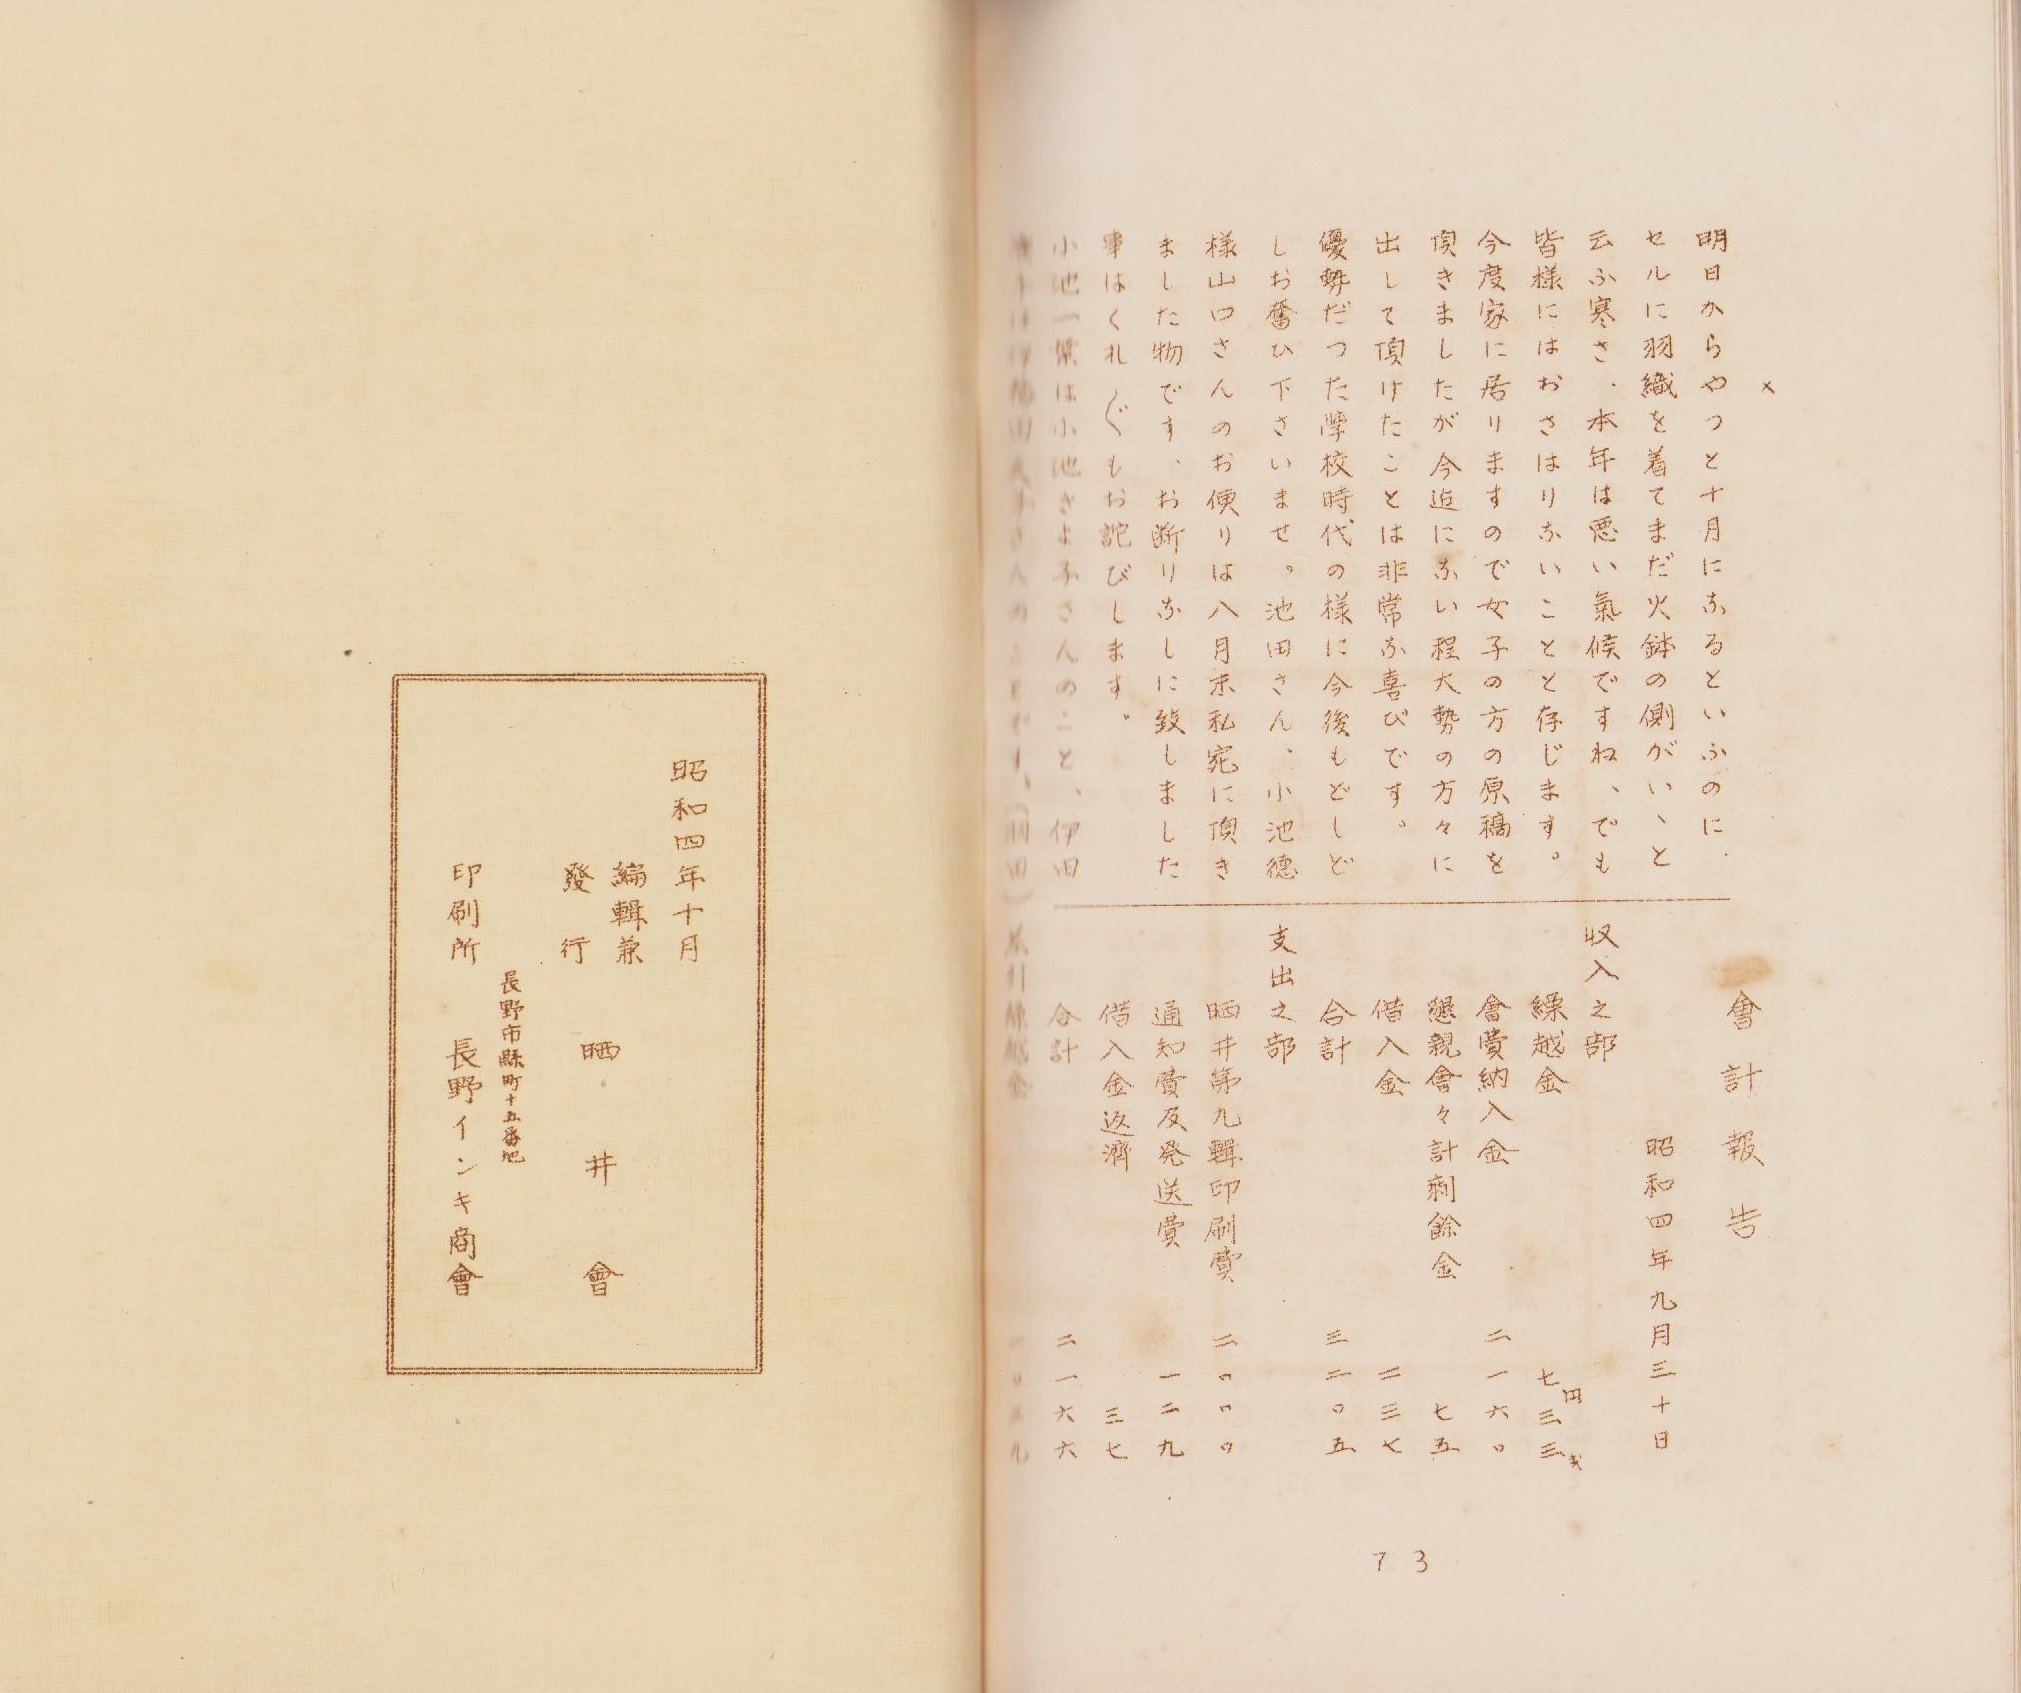 ×
明日からやつと十月になるといふのに、
セルに羽織を着てまだ火鉢の側がいゝと
云ふ寒さ、本年は悪い氣候ですね、でも
皆様にはおさはりないことと存じます。
今度家に居りますので女子の方の原稿を
頂きましたが今迄にない程大勢の方々に
出して頂けたことは非常な喜びです。
優勢だつた學校時代の様に今後もどしど
しお奮ひ下さいませ。池田さん、小池德
様山口さんのお便りは八月末私宛に頂き
ました物です、お断りなしに致しました
事はくれ〴〵もお詫びします。
小池一葉は小池きよ子さんのこと、伊田
會計報告
昭和四年九月三十日
収入之部
繰越金 七円三三戋
會費納入金 二一六〇
懇親會々計剰餘金 七五
借入金 二三七
合計 三二〇五
支出之部
晒井第九輯印刷費 二〇〇〇
通知費及発送費 一二九
借入金返濟 三七
合計 二一六六
差引繰越金
73
昭和四年十月
編輯兼
發行 晒井會
長野市縣町十五番地
印刷所 長野インキ商會